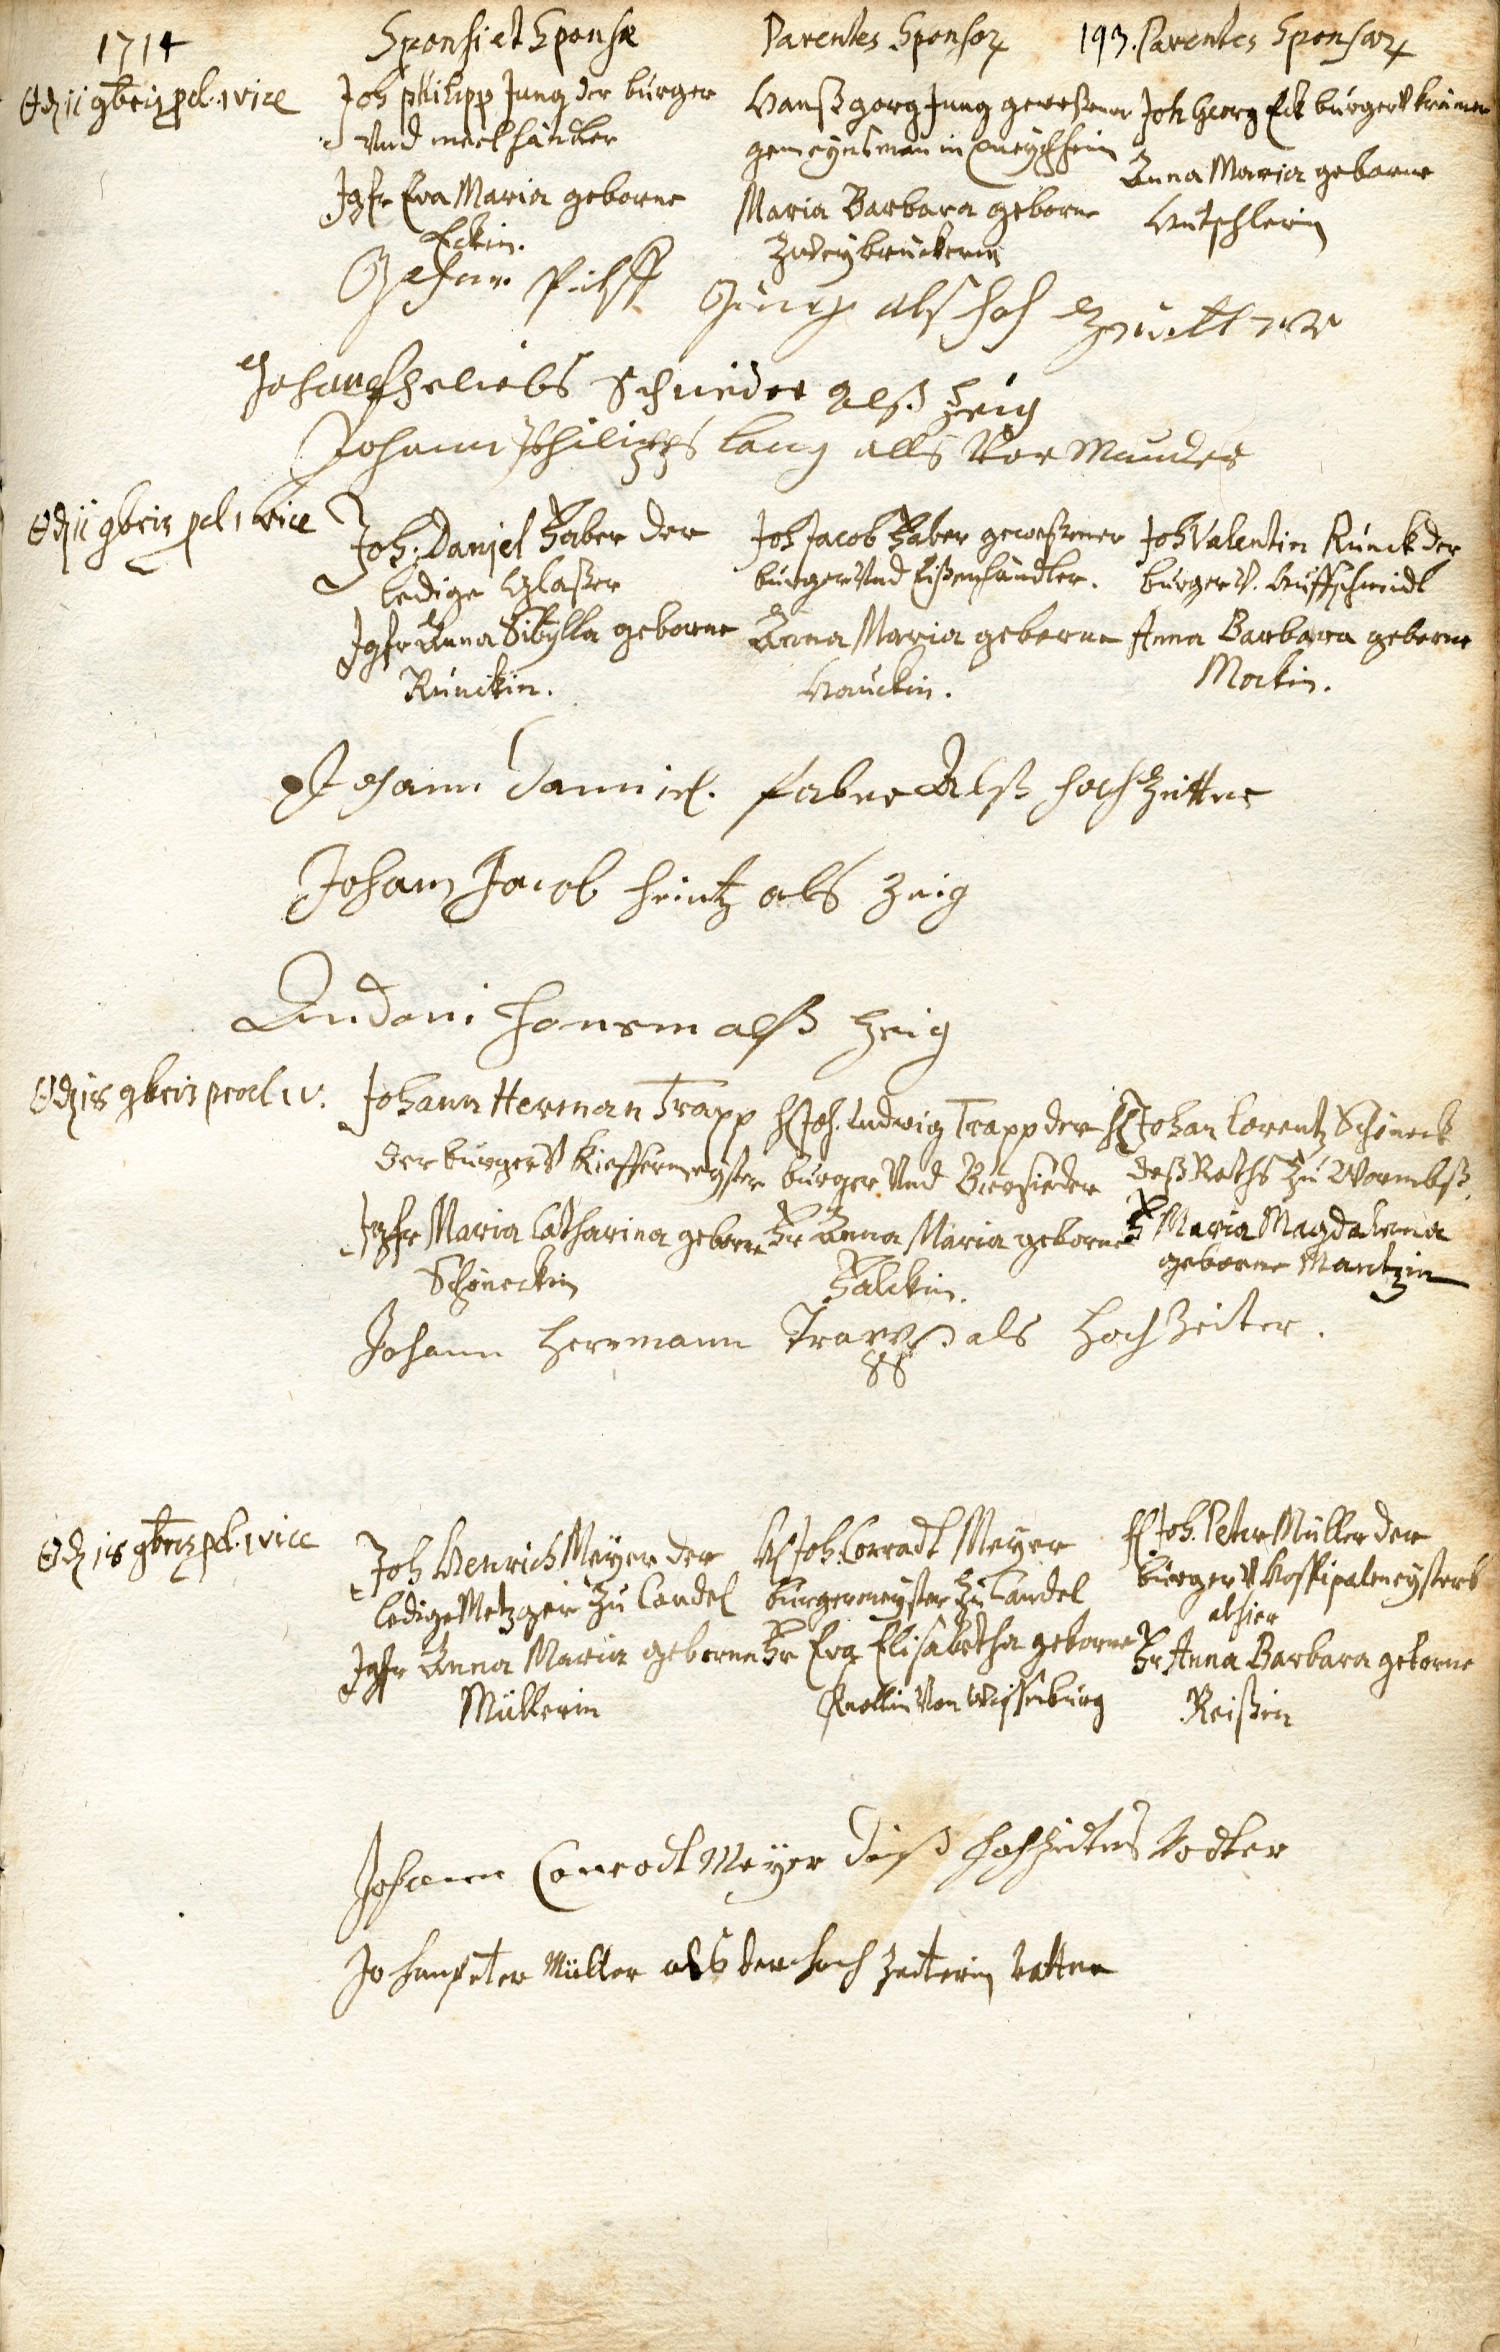 1714
Sponsi et Sponsæ
Parentes Sponsor.
193. Parentes Sponsar.
11 9bris pcl. 1 vice
Joh philipp Jung der bürger
Vnd meelhändler
Jgfr Eva Maria geborne
Eckin.
Hanß görg Jung geweßener
gemeynsman in
Maria Barbara geborne
Zweybruckerin
Joh Georg Eck bürger V krämer
Anna Maria geborne
Hutschlerin
Jung als hoch Zeitter
Schneider alß Zeig
Johann Philipps Lang alls Vormunder
11 9bris pcl 1 vice
Joh: Daniel Faber der
ledige Glaßer
Jgfr Anna Sibylla geborne
Runckin.
Joh Jacob Faber geweßener
bürger Vnd Eißenhändler.
Anna Maria geborne
Hauckin.
Joh Valentin Runck der
bürger V. Huffschmidt
Anna Barbara geborne
Mockin.
Johann Danniel. faber Alß hochzeitter
Johann Jacob heintz als Zeig
Andoni alß Zeig
18 9bris procl 1 v.
Johann Herman Trapp
der bürger V Kieffermeyster
Jgfr Maria Catharina geborne
Schöneckin
H Joh. Ludwig Trapp der
bürger Vnd Biersieder
Fr Anna Maria geborne
Falckin.
H Johan Lorentz Schöneck
deß Raths zu Wormbß.
F Maria Magdalena
geborne Mantzin
Johann Herrmann Trapp als HochZeiter.
18 9bris pcl. 1 vice
Joh Henrich Meyer der
ledige Metzger zu Landel
Jgfr Anna Maria geborne
Müllerin
H Joh. Conradt Meyer
bürgermeyster zu Landel
Fr Eva Elisabetha geborne
Knollin Von Weissenburg
H Joh. Peter Müller der
bürger V Hospitalmeyster
alhier
Fr Anna Barbara geborne
Reißin
Johann Conradt Meyer deß hochzeiters Vatter
Johan peter Müller als der hoch Zeiterin Vatter